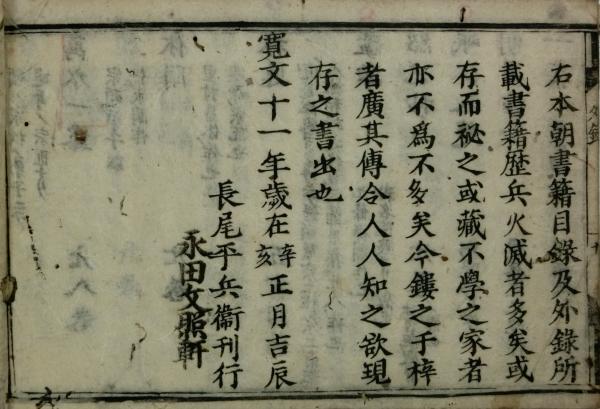 右本朝書籍目錄及外錄所
載書籍歷兵火滅者多矣或
存而祕之或藏不學之家者
亦不爲不多矣今鏤之于梓
者廣其傳令人人知之欲現
存之書出也
寬文十一年歲在辛亥正月吉辰
長尾平兵衞刊行
永田文照軒